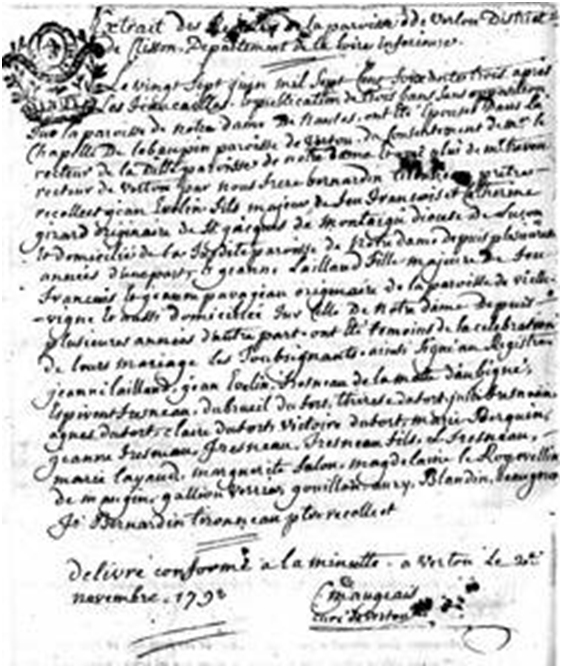 Extrait des Registres de la paroisse de Vertou District
de Clisson, Departement de la loire inferieure.
Le vingt Sept juin mil Sept Cens Soixante trois, après
les fiancailles, et publication de trois bans sans opposition
Sur la paroisse de notre dame De Nantes, ont été Epousés Dans la
Chapelle De lebaupin paroisse de Vertou, du Consentement de mr. le
recteur de la Ditte paroisse de notre dame et de celui de
recteur de Vertou par nous frere bernardin pretre
recollect jean Evelin fils majeur de feu francois et Catherine
girard originaire de St jacques de montaigu diocese de Luçon
et domicilié de la Susdite paroisse de Notre dame depuis plusieurs
années d'une part, et jeanne Laillaud fille majeure de feu
francois et jeanne pavajeau originaire de la paroisse de vieille
-vigne et aussi domiciliée Sur celle De Notre dame depuis
plusieures années d'autre part. ont été temoins de la celebration
de leurs mariage les Soubsignants. ainsi Signé au Registre
jeanne laillaud, jean Evelin, fresneau de la motte d'aubigné,
lespivent fresneau, dubreuil du fort, therese dufort, julie fresneau,
agnes dufort, claire dufort, victoire dufort, marie Berquin,
jeanne fresneau, fresneau, fresneau fils, et fresneau,
marie layaud, marguerite Salon, magdelaine le
de maugin, gallion Verrier gouillon, aury, Blandin, Beaugeron
fr. Bernardin ptre recollect
delivré conforme a la minutte. a Vertou Le 2e
novembre. 1792
Maugeais
curé de vertou